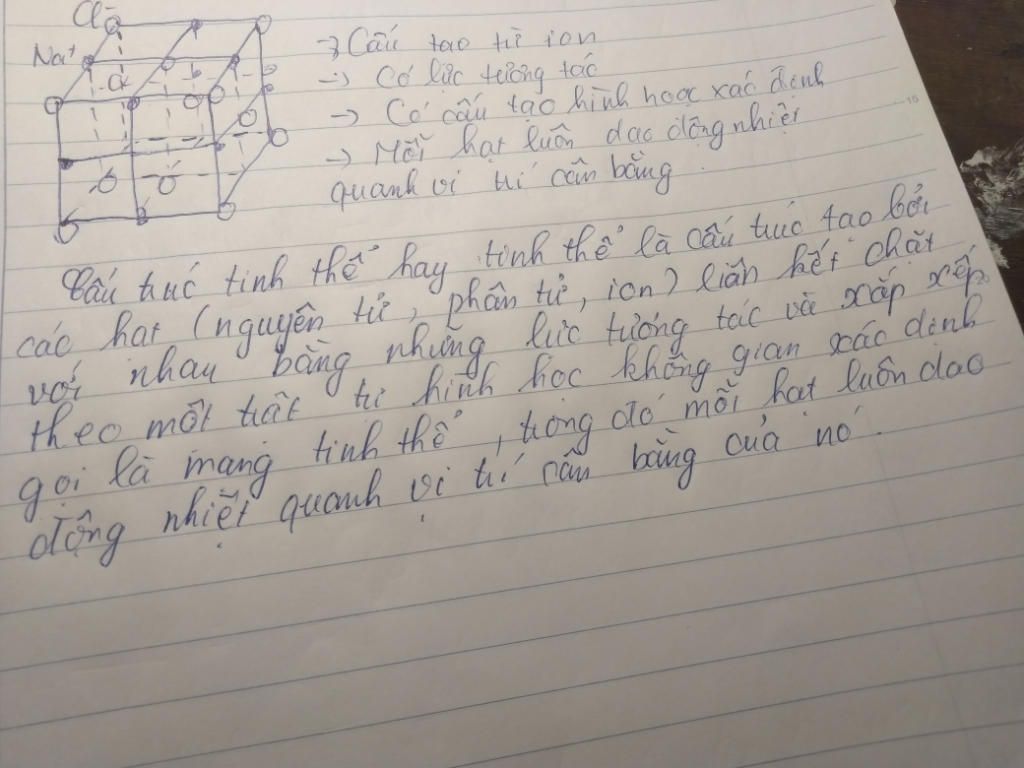 Cl-
Na+
Cl
→ Cấu tạo từ ion
→ Có lực tương tác
→ Có cấu tạo hình học xác định
→ Mỗi hạt luôn dao động nhiệt
quanh vị trí cân bằng.
Cấu trúc tinh thể hay tinh thể là cấu trúc tạo bởi
các hạt (nguyên tử, phân tử, ion) liên kết chặt
với nhau bằng những lực tương tác và xắp xếp
theo một trật tự hình học không gian xác định
gọi là mạng tinh thể, trong đó mỗi hạt luôn dao
động nhiệt quanh vị trí cân bằng của nó.